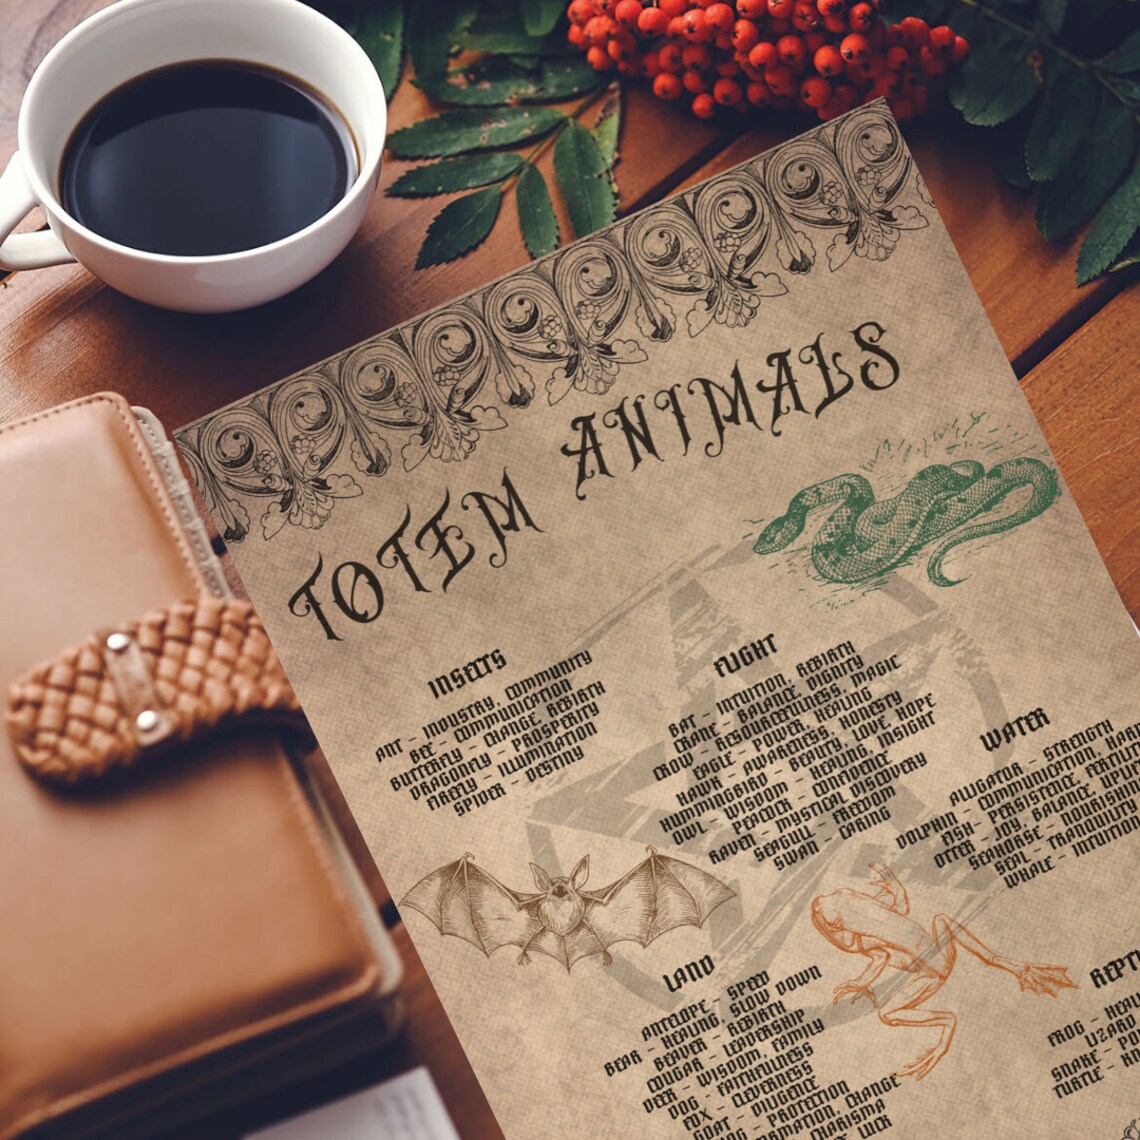 TOTEM ANIMALS
INSECTS
ANT - INDUSTRY, COMMUNITY
BEE - COMMUNICATION
BUTTERFLY - CHANGE, REBIRTH
DRAGONFLY - PROSPERITY
FIREFLY - ILLUMINATION
SPIDER - DESTINY
FLIGHT
BAT - INTUITION, REBIRTH
CRANE - BALANCE, DIGNITY
CROW - RESOURCEFULNESS, MAGIC
EAGLE - POWER, HEALING
HAWK - AWARENESS, HONESTY
HUMMINGBIRD - BEAUTY, LOVE, HOPE
OWL - WISDOM, HEALING, INSIGHT
PEACOCK - CONFIDENCE
RAVEN - MYSTICAL DISCOVERY
SEAGULL - FREEDOM
SWAN - CARING
WATER
ALLIGATOR - STRENGTH
DOLPHIN - COMMUNICATION,
FISH - PERSISTENCE,
OTTER - JOY, BALANCE,
SEAHORSE - NOURISHING
SEAL - TRANQUILITY
WHALE - INTUITION
LAND
ANTELOPE - SPEED
BEAR - HEALING, SLOW DOWN
BEAVER - REBIRTH
COUGAR - LEADERSHIP
DEER - WISDOM, FAMILY
DOG - FAITHFULNESS
FOX - CLEVERNESS
GOAT - DILIGENCE
PROTECTION
CHANGE
CHARISMA
LUCK
FROG -
LIZARD
SNAKE -
TURTLE -